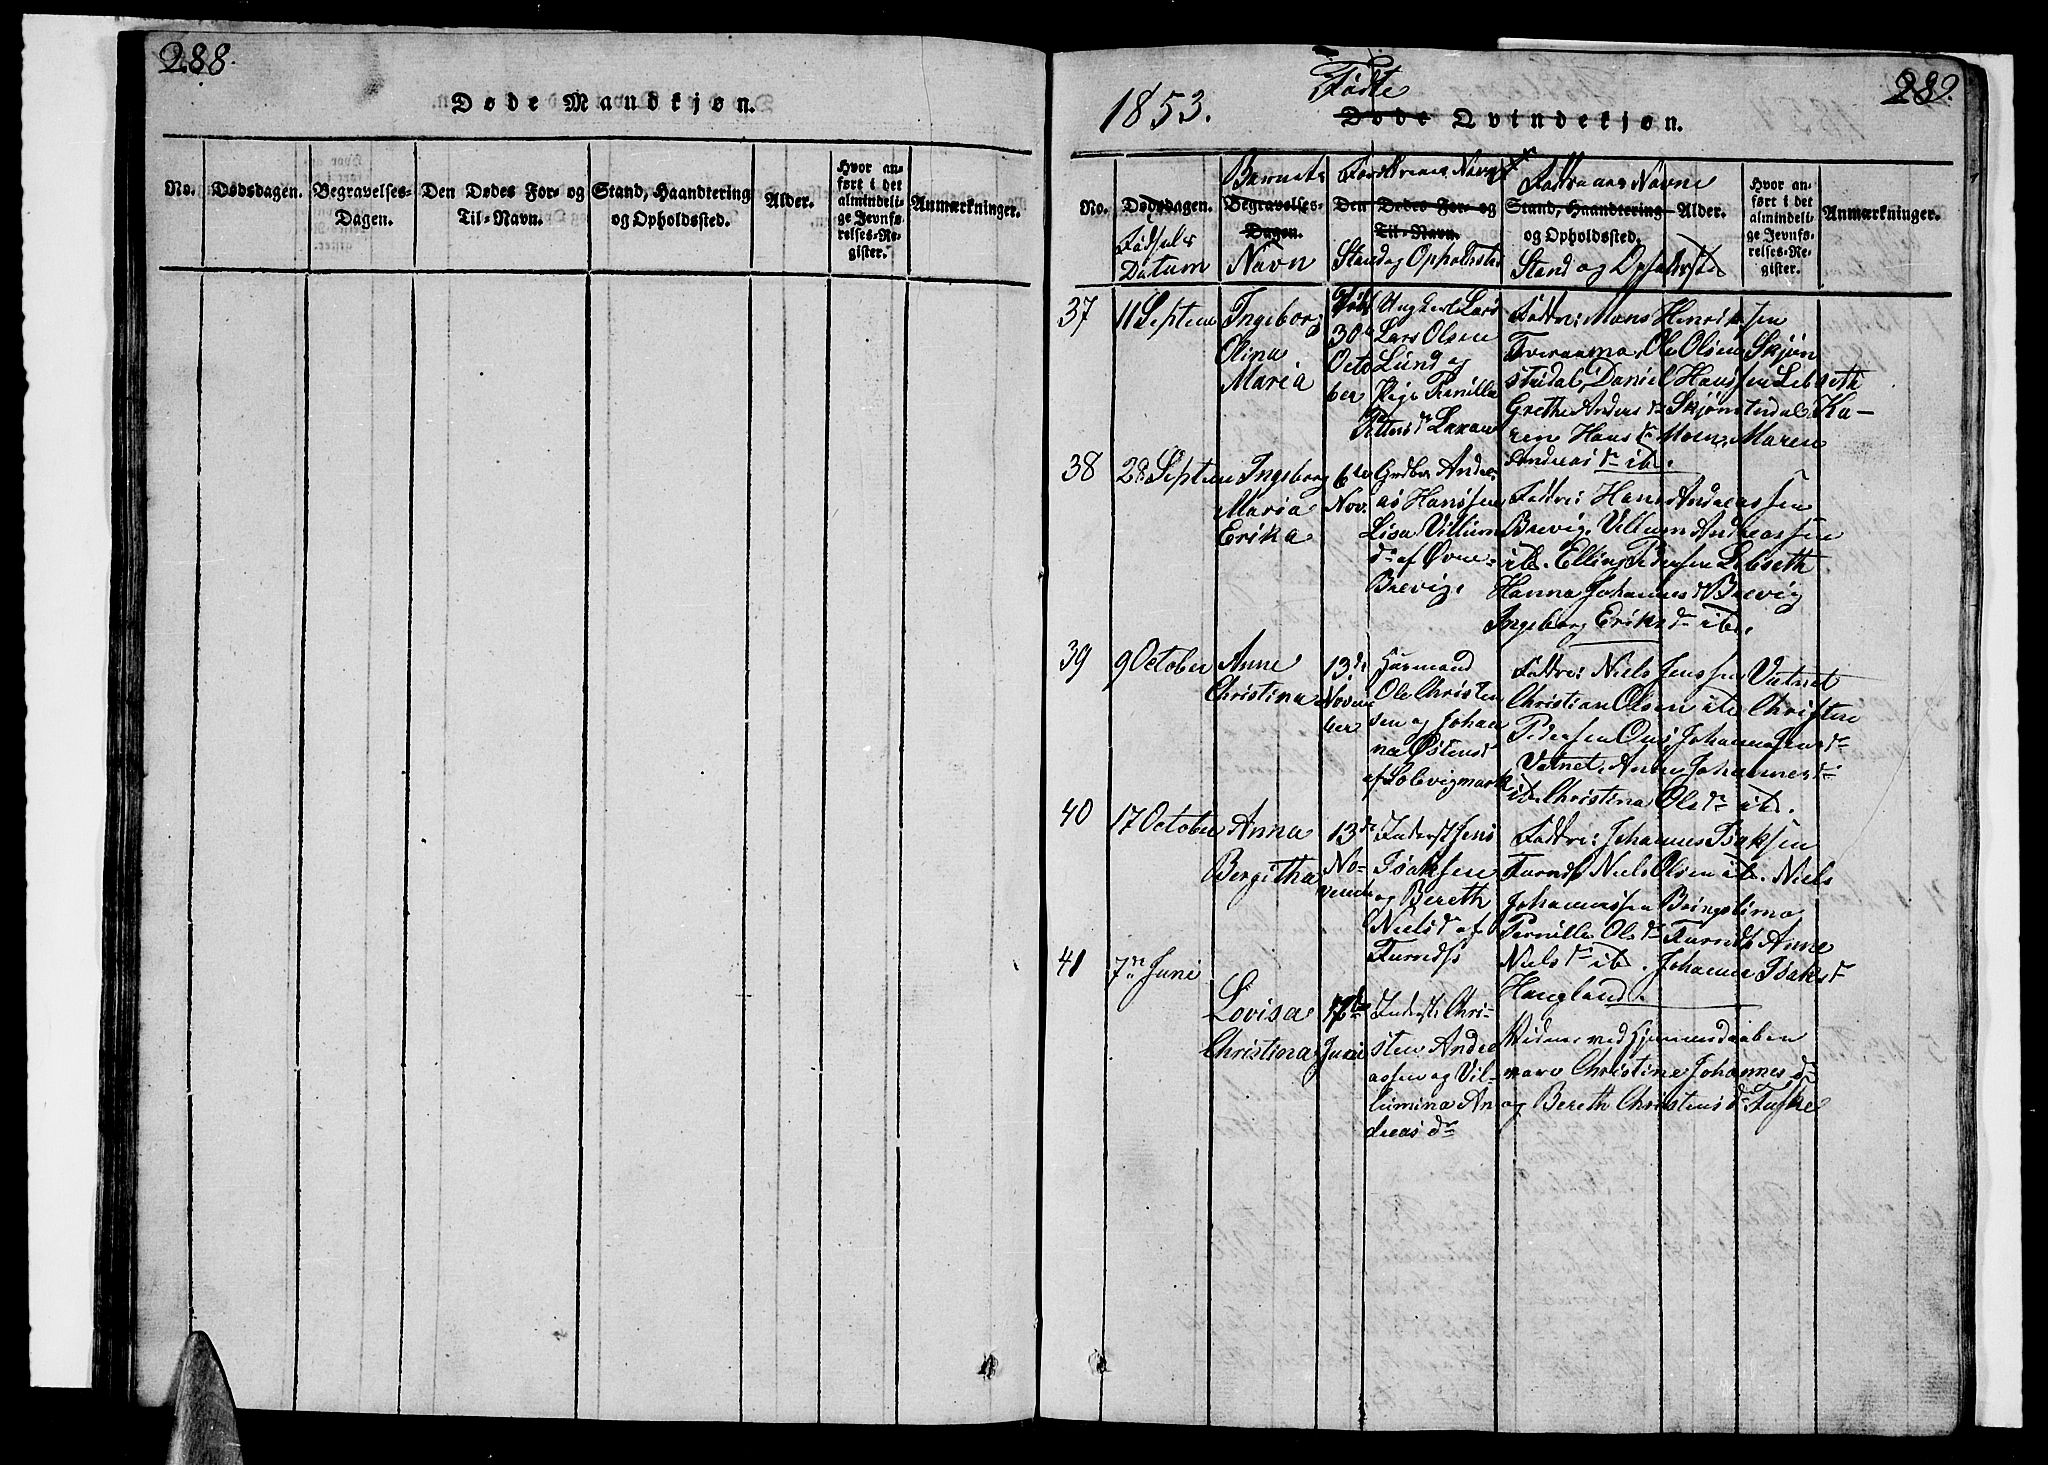 288.
Døde Mandkjøn.
No.
Dødsdagen.
Begravelses-
Dagen.
Den Dødes For- og
Til-Navn.
Stand, Haandtering
og Opholdssted.
Alder.
Hvor an-
ført i det
almindeli-
ge Jevnfø-
relses-Re-
gister.
Anmærkninger.
289.
1853.
Fødte
Døde Qvindekjøn.
No.
Dødsdagen.
Fødsels
Datum
Barnets
Begravelses-
Dagen.
Navn
Forældrenes Navn
Den Dødes For- og
Til-Navn.
Stand og Opholdsted
Faddernes Navne
Stand, Haandtering
og Opholdssted.
Stand og Opholdsted
Alder.
Hvor an-
ført i det
almindeli-
ge Jevnfø-
relses-Re-
gister.
Anmærkninger.
37
11 Septem
Ingeborg
Olina
Maria
30
Octo
ber
Ungkarl Lars
Lars Olsen
Lund og
Pige Pernilla
Petters dr Laxaa
Faddre: Mons Henriksen
Tveraamo, Ole Olsen Skjøn
stedal, Daniel Hanssen Lebseth
Grethe Anders dr Skjønstedal, Ka-
ren Hans dr Moen, Maren
Andreas dr ib.
38
28 Septem
Ingeborg
Maria
Erika
6te
Nov.
Grdbr Andre
as Hanssen
Lisa Villum
dr af Øvre
Brevig.
Faddre: Hans Andreassen
Brevig, Villum Andreassen
ib. Elling Pedersen Lebseth
Hanna Johannes dr Brevig
Ingeborg Eriks dr ib.
39
9 October
Anne
Christina
13de
Novem
ber
Huusmand
Ole Christen
sen og Johan
na Østens dr
af Solevigmark
Faddre: Niels Jenssen Vatnet
Christian Olsen ib Christen
Pedersen Johanna Jens dr
Vatnet, Anne Johannes dr
ib. Christina Ols dr ib.
40
17 October
Anna
Bergitha
13de
No-
vemb
Inderst Jens
Isaksen
og Bereth
Niels dr af
Turnds
Faddre: Johannes Isaksen
Turnds Niels Olsen ib. Niels
Johannessen Bringslimo
Pernille Ols dr Turnds Anne
Niels dr ib. Johanna Isaks dr
Haugland.
41
7de Juni
Lovisa
Christina
12te
Juni
Inderst Chri-
sten Andre
assen og Vil-
lumina An
dreas dr
Vidner ved Hjemmedaaben
vare Christine Johannes dr
og Bereth Christens dr Fuske